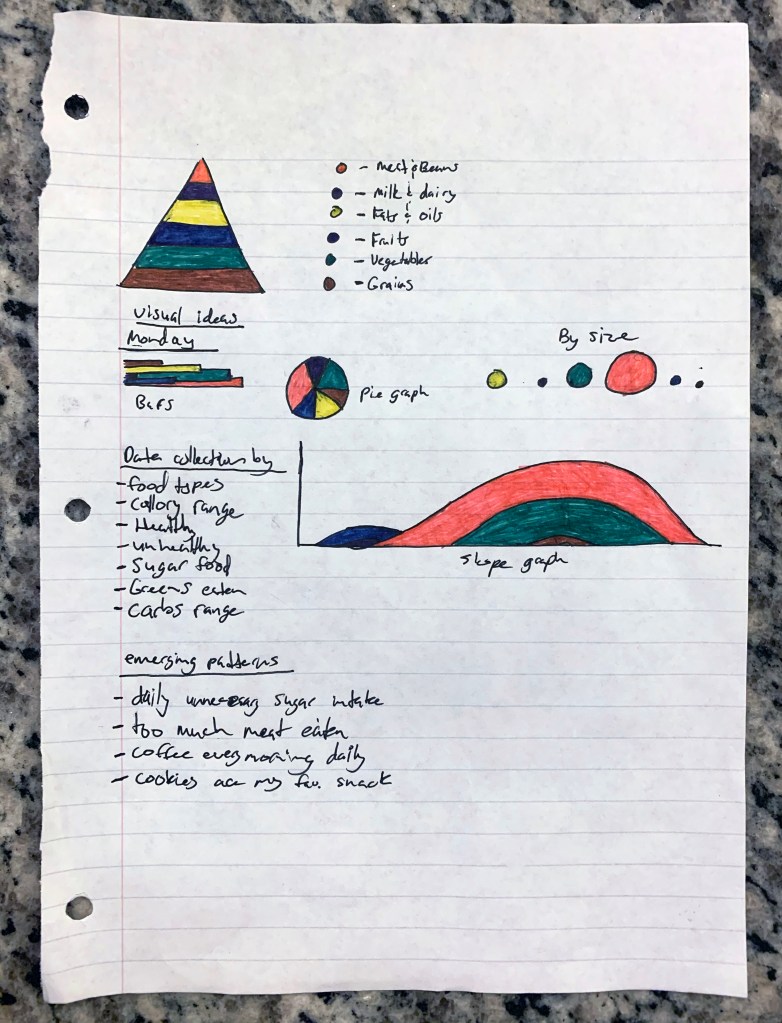 - Meat & Beans
- Milk & dairy
- Fats & oils
- Fruits
- Vegetables
- Grains
Visual ideas
Monday
Bars
Pie graph
By size
Data collections by
- food types
- Callory range
- Healthy
- unhealthy
- Sugar food
- Greens eaten
- Carbs range
Slope graph
emerging patterns
- daily unnecessary sugar intake
- too much meat eaten
- coffee every morning daily
- cookies are my fav. snack